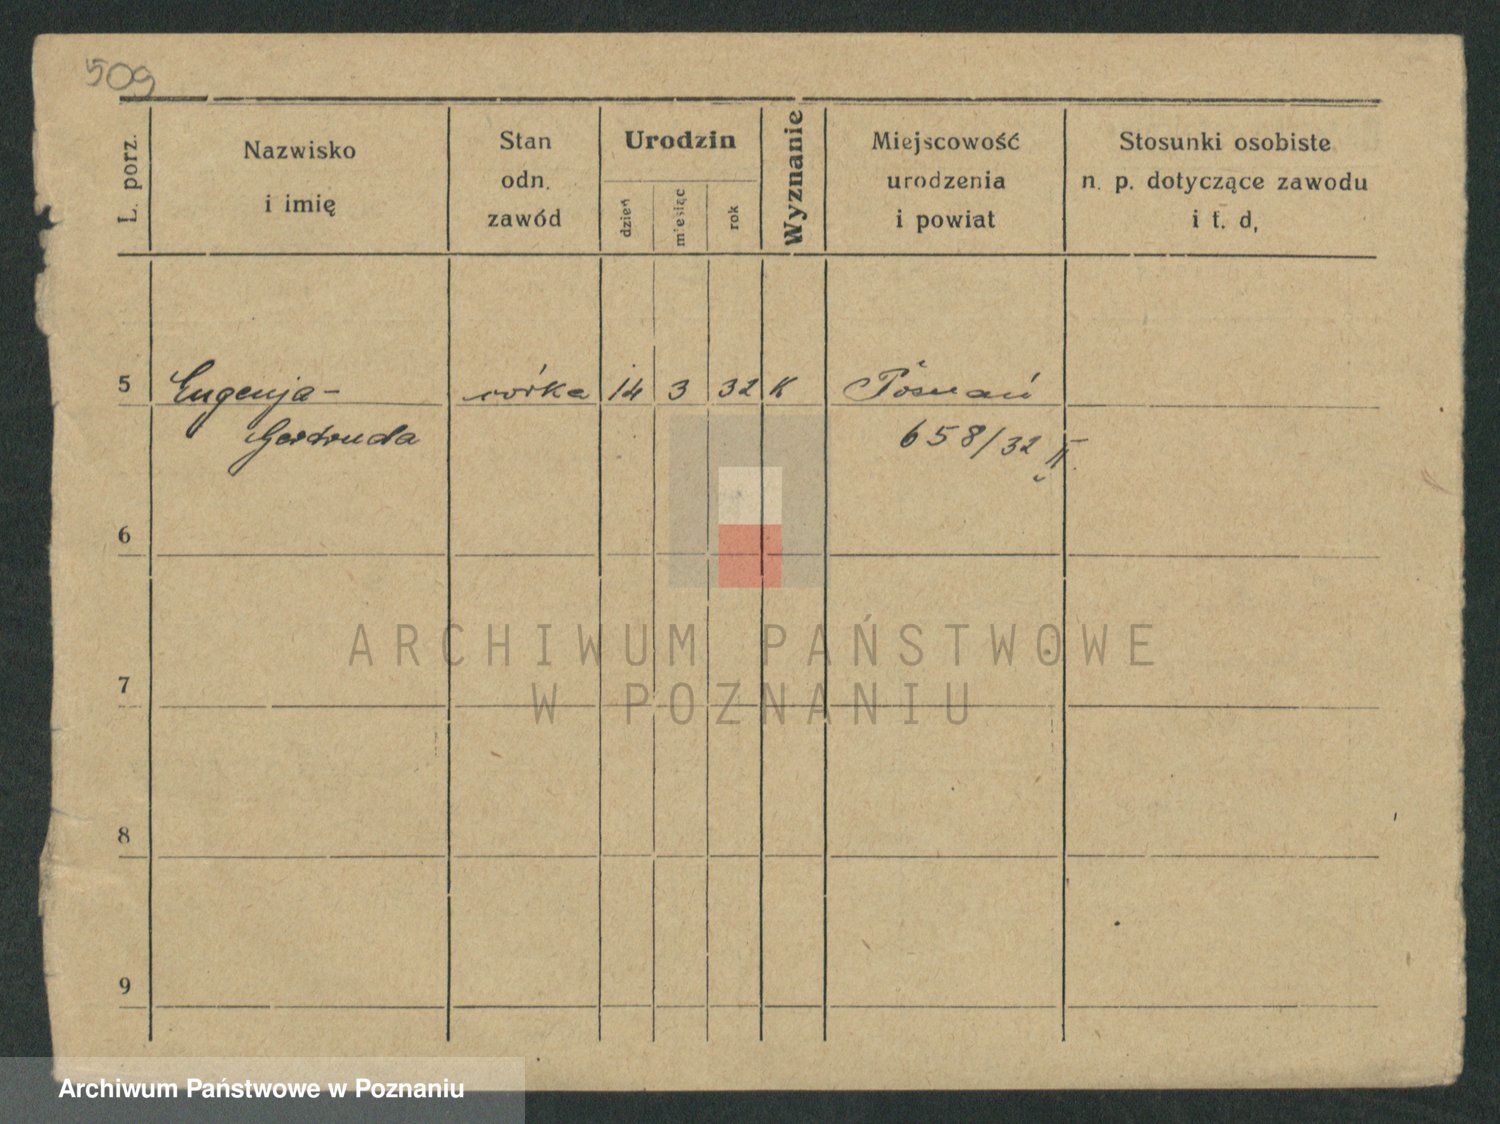 509
L. porz.
Nazwisko
i imię
Stan
odn.
zawód
Urodzin
dzień
miesiąc
rok
Wyznanie
Miejscowość
urodzenia
i powiat
Stosunki osobiste
n. p. dotyczące zawodu
i t. d,
5 Eugenja- córka 14 3 32 K Poznań
Gertruda 658/32 II
6
7
8
9
ARCHIWUM PAŃSTWOWE
W POZNANIU
Archiwum Państwowe w Poznaniu